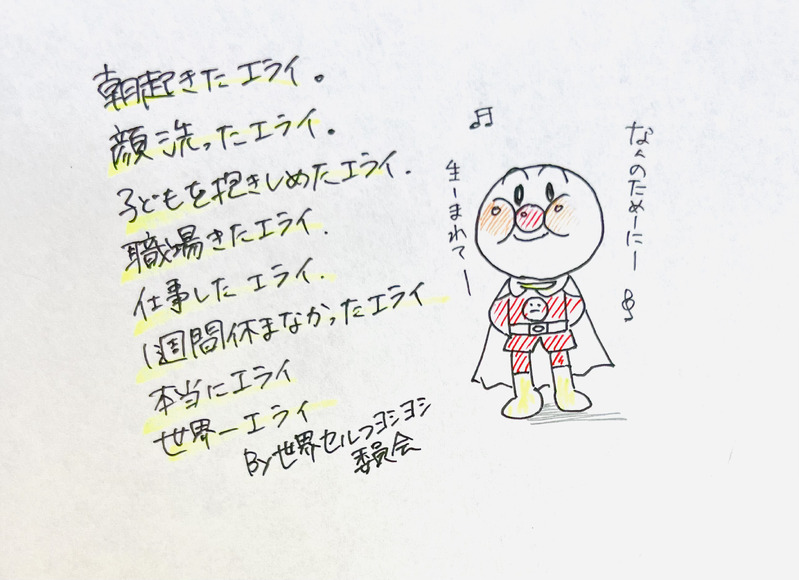 朝起きたエライ。
顔洗ったエライ。
子どもを抱きしめたエライ.
職場きたエライ.
仕事した エライ.
1週間休まなかったエライ
本当にエライ
世界一エライ
By世界セルフヨシヨシ
委員会
なんのためーにー
生ーまれてー